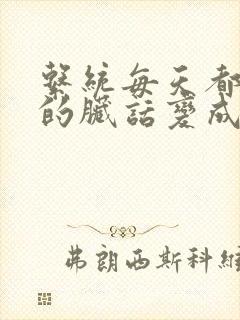 繫統每天都
的臟話變成
弗朗西斯科維